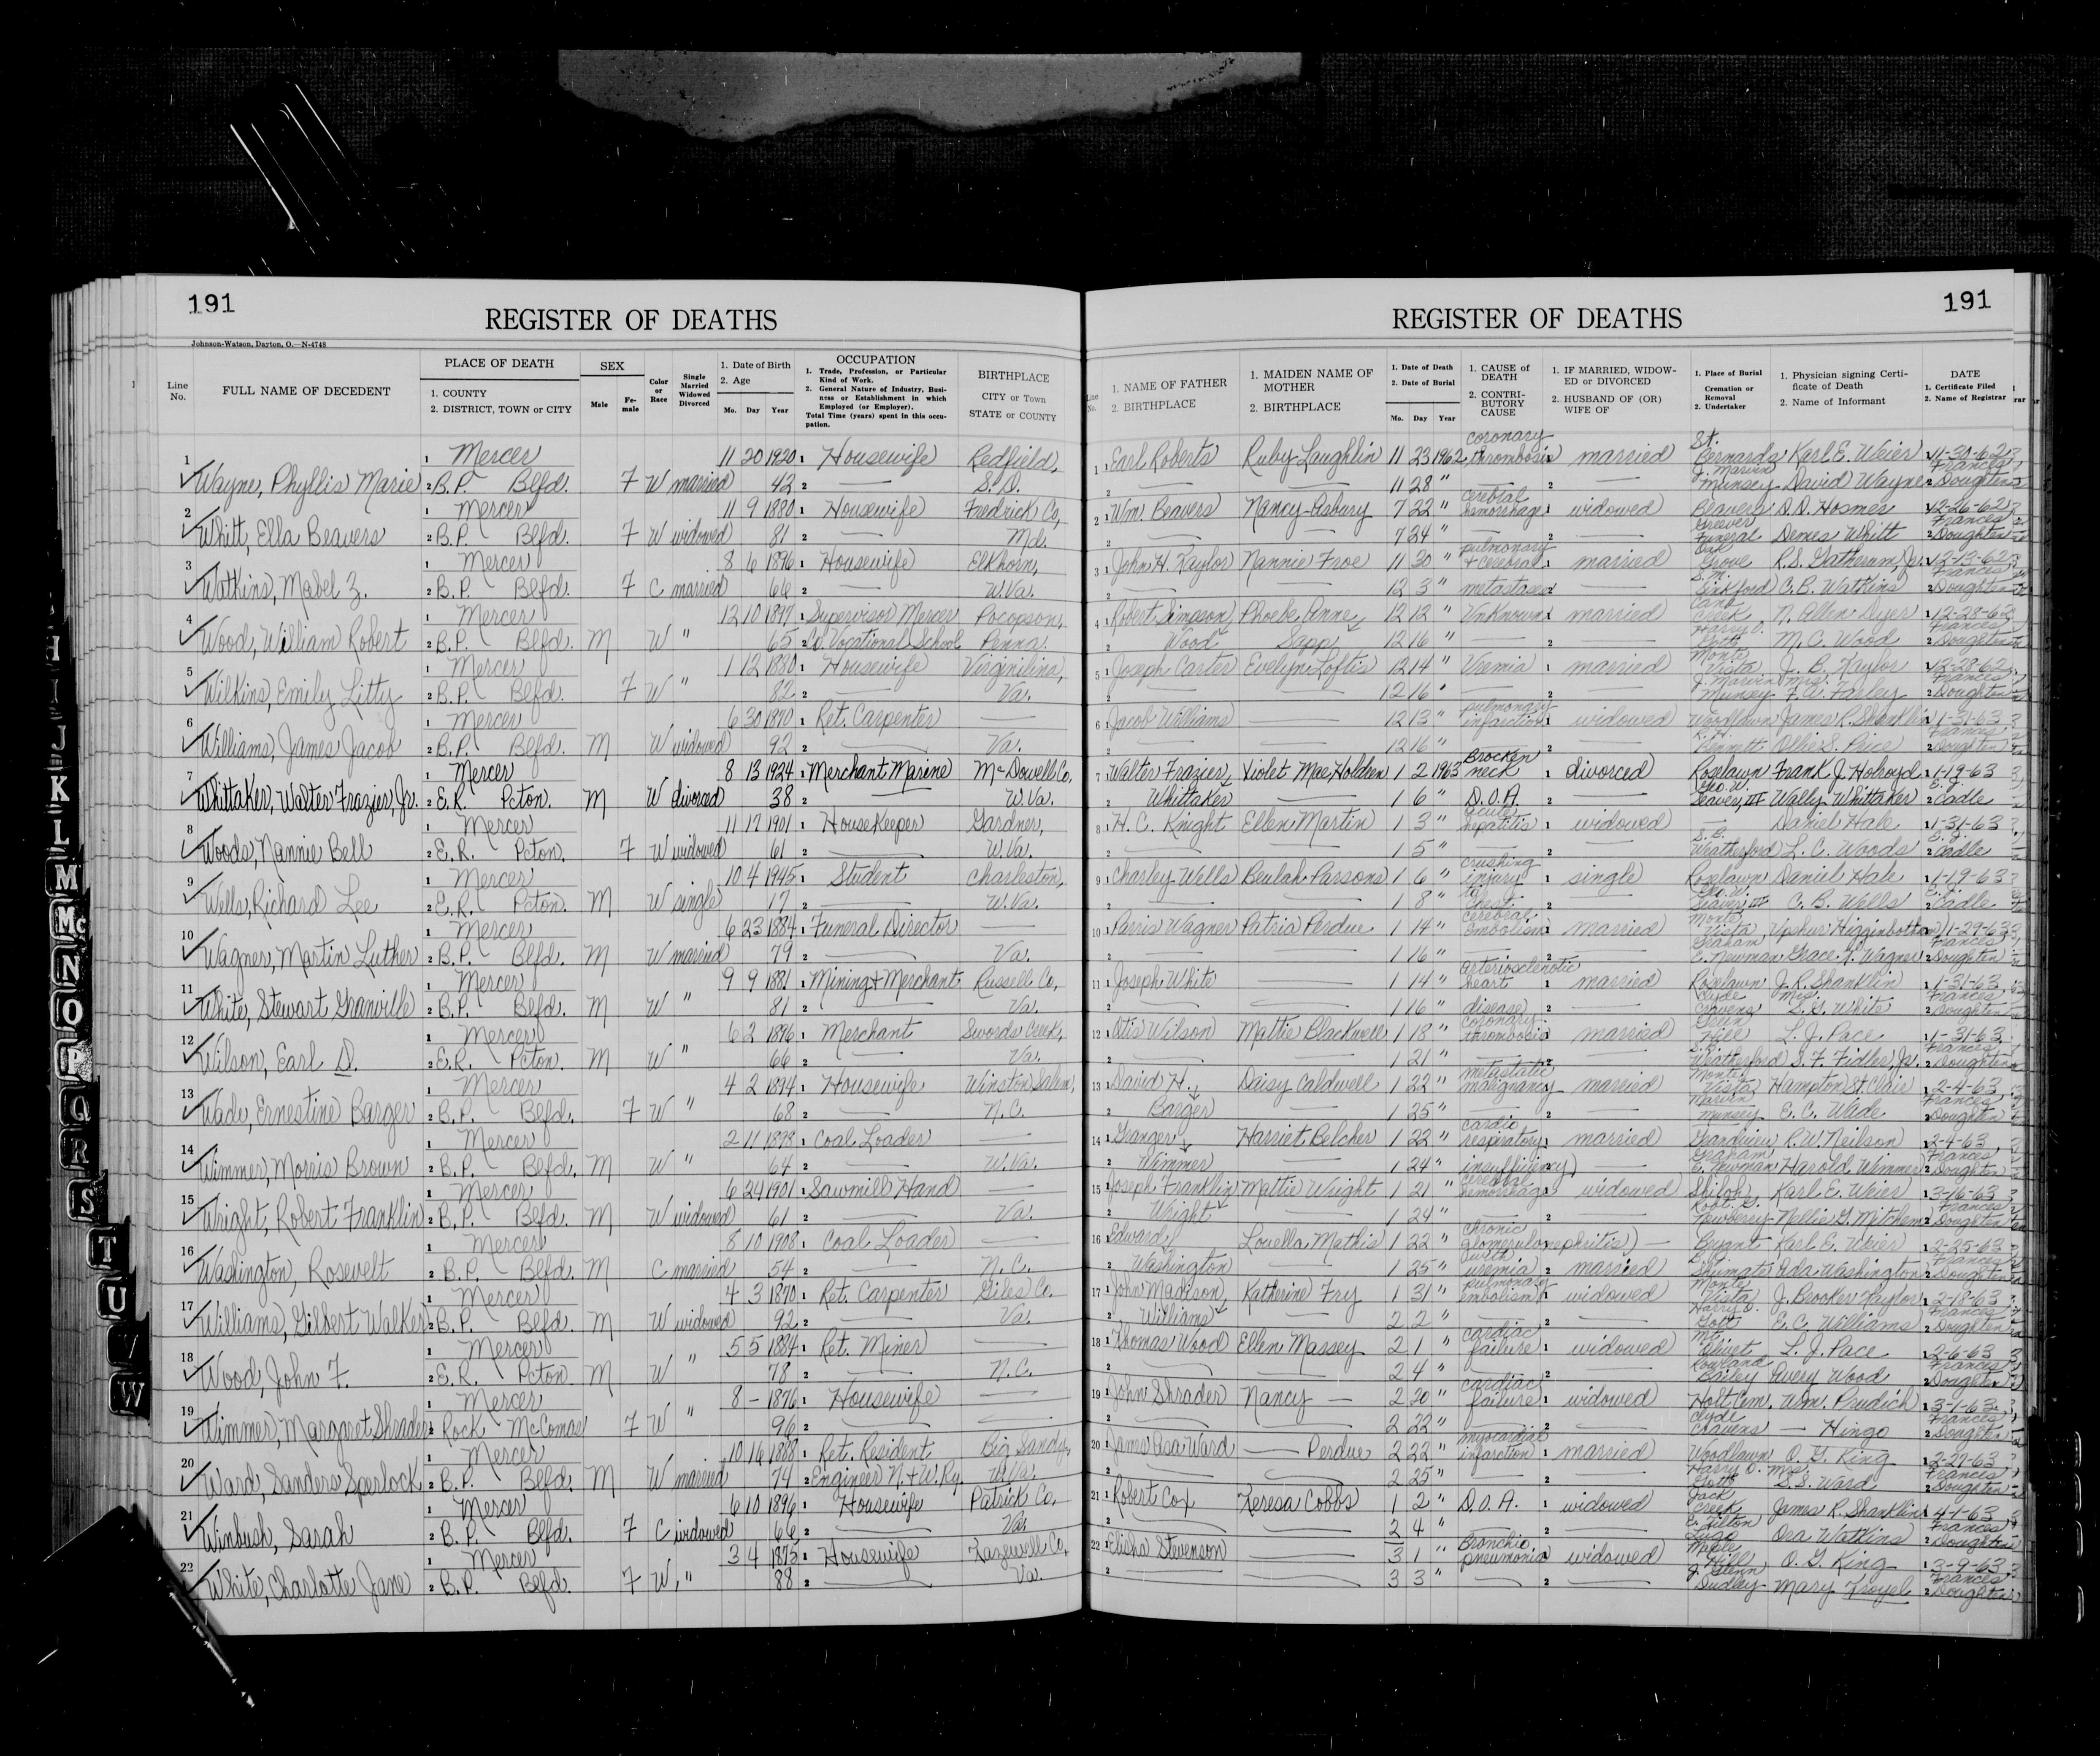 191
REGISTER OF DEATHS
Johnson-Watson, Dayton, O.—N-4748
Line No.
FULL NAME OF DECEDENT
PLACE OF DEATH
1. COUNTY
2. DISTRICT, TOWN or CITY
SEX
Male
Fe-male
Color or Race
Single Married Widowed Divorced
1. Date of Birth
2. Age
Mo. Day Year
OCCUPATION
1. Trade, Profession, or Particular Kind of Work.
2. General Nature of Industry, Business or Establishment in which Employed (or Employer).
Total Time (years) spent in this occupation.
BIRTHPLACE
CITY or Town
STATE or COUNTY
1 Wayne, Phyllis Marie 1 Mercer 11 20 1920 1 Housewife Redfield,
2 B.P. Blfd. F W married 42 2 — S.D.
2 Whitt, Ella Beavers 1 Mercer 11 9 1880 1 Housewife Fredrick Co,
2 B.P. Blfd. F W widowed 81 2 — Md.
3 Watkins, Mabel Z. 1 Mercer 8 6 1896 1 Housewife Elkhorn,
2 B.P. Blfd. F C married 66 2 — W.Va.
4 Wood, William Robert 1 Mercer 12 10 1897 1 Supervisor Mercer Pocopson,
2 B.P. Blfd. M W " 65 2 Co. Vocational School Penna.
5 Wilkins, Emily Litty 1 Mercer 1 12 1880 1 Housewife Virginilina,
2 B.P. Blfd. F W " 82 2 — Va.
6 Williams, James Jacob 1 Mercer 6 30 1870 1 Ret. Carpenter —
2 B.P. Blfd. M W widowed 92 2 — Va.
7 Whittaker, Walter Frazier, Jr. 1 Mercer 8 13 1924 1 Merchant Marine McDowell Co,
2 E.R. Pcton. M W divorced 38 2 W.Va.
8 Woods, Nannie Bell 1 Mercer 11 17 1901 1 HouseKeeper Gardner,
2 E.R. Pcton. F W widowed 61 2 — W.Va.
9 Wells, Richard Lee 1 Mercer 10 4 1945 1 Student Charleston,
2 E.R. Pcton. M W single 17 2 — W.Va.
10 Wagner, Martin Luther 1 Mercer 6 23 1884 1 Funeral Director —
2 B.P. Blfd. M W married 79 2 — Va.
11 White, Stewart Granville 1 Mercer 9 9 1881 1 Mining + Merchant Russell Co,
2 B.P. Blfd. M W " 81 2 — Va.
12 Wilson, Earl D. 1 Mercer 6 2 1896 1 Merchant Swords Creek,
2 E.R. Pcton. M W " 66 2 — Va.
13 Wade, Ernestine Barger 1 Mercer 4 2 1894 1 Housewife Winston Salem,
2 B.P. Blfd. F W " 68 2 — N.C.
14 Wimmer, Morris Brown 1 Mercer 2 11 1898 1 Coal Loader —
2 B.P. Blfd. M W " 64 2 — W.Va.
15 Wright, Robert Franklin 1 Mercer 6 24 1901 1 Sawmill Hand —
2 B.P. Blfd. M W widowed 61 2 — Va.
16 Washington, Rosevelt 1 Mercer 8 10 1908 1 Coal Loader —
2 B.P. Blfd. M C married 54 2 — N.C.
17 Williams, Gilbert Walker 1 Mercer 4 3 1870 1 Ret. Carpenter Giles Co.
2 B.P. Blfd. M W widowed 92 2 — Va.
18 Wood, John F. 1 Mercer 5 5 1884 1 Ret. Miner —
2 E.R. Pcton M W " 78 2 — N.C.
19 Wimmer, Margaret Shrader 1 Mercer 8 – 1876 1 Housewife —
2 Rock McComas F W " 96 2 —
20 Ward, Sanders Sperlock 1 Mercer 10 16 1888 1 Ret. Resident Big Sandy,
2 B.P. Blfd. M W married 74 2 Engineer N.+W.Ry. W.Va.
21 Winbush, Sarah 1 Mercer 6 10 1896 1 Housewife Patrick Co,
2 B.P. Blfd. F C widowed 66 2 — Va.
22 White, Charlotte Jane 1 Mercer 3 4 1875 1 Housewife Tazewell Co,
2 B.P. Blfd. F W " 88 2 — Va.
191
REGISTER OF DEATHS
Line No.
1. NAME OF FATHER
2. BIRTHPLACE
1. MAIDEN NAME OF MOTHER
2. BIRTHPLACE
1. Date of Death
2. Date of Burial
Mo. Day Year
1. CAUSE of DEATH
2. CONTRIBUTORY CAUSE
1. IF MARRIED, WIDOWED or DIVORCED
2. HUSBAND OF (OR) WIFE OF
1. Place of Burial Cremation or Removal
2. Undertaker
1. Physician signing Certificate of Death
2. Name of Informant
DATE
1. Certificate Filed
2. Name of Registrar
1 Earl Roberts Ruby Laughlin 11 23 1962 coronary thrombosis married St. Bernards Karl E. Weier 11-30-62
11 28 " — J. Marvin Munsey David Wayne Frances Doughten
2 Wm. Beavers Nancy Asbury 7 22 " cerebral hemorrhage widowed Beavers D.D. Hosmer 12-26-62
7 24 " — Greever Funeral Demes Whitt Frances Doughten
3 John H. Kaylor Nannie Froe 11 30 " pulmonary + cerebral married Oak Grove R.S. Gatherum, Jr. 12-13-62
12 3 " metastases S.M. C.B. Watkins Frances Doughten
4 Robert Simpson Phoebe Anne 12 12 " Unknown married Camp Creek N. Allen Dyer 12-28-62
Wood Sapp 12 16 " — Harry O. Gott M.C. Wood Frances Doughten
5 Joseph Carter Evelyn Loftis 12 14 " Uremia married Monte Vista J.B. Kaylor 12-28-62
12 16 " — J. Marvin Munsey Mrs. F.W. Farley Frances Doughten
6 Jacob Williams — 12 13 " pulmonary infarction widowed Woodlawn James R. Shanklin 1-31-63
12 16 " — R.H. Bennett Ollie S. Price Frances Doughten
7 Walter Frazier Violet Mae Holdren 1 2 1963 Brocken neck divorced Roselawn Frank J. Holroyd 1-19-63
Whittaker — 1 6 " D.O.A. — Geo. W. Seaver, III Wally Whittaker E.J. Cadle
8 H.C. Knight Ellen Martin 1 3 " acute hepatitis widowed — Daniel Hale 1-31-63
1 5 " — S.E. Weatherford L.C. Woods E.J. Cadle
9 Charley Wells Beulah Parsons 1 6 " crushing injury single Roselawn Daniel Hale 1-19-63
1 8 " to chest — Geo. W. Seaver, III C.B. Wells E.J. Cadle
10 Parris Wagner Patria Perdue 1 14 " cerebral embolism married Monte Vista Upshur Higginbotham 1-29-63
1 16 " — Graham E. Newman Grace N. Wagner Frances Doughten
11 Joseph White — 1 14 " arteriosclerotic heart married Roselawn J.R. Shanklin 1-31-63
1 16 " disease — Clyde Cravens Mrs. S.G. White Frances Doughten
12 Otis Wilson Mattie Blackwell 1 18 " coronary thrombosis married Hill L.J. Pace 1-31-63
1 21 " — Weatherford S.F. Fidler, Jr. Frances Doughten
13 David H. Daisy Caldwell 1 22 " metastatic malignancy married Monte Vista Hampton St. Clair 2-4-63
Barger — 1 25 " — Marvin Munsey E.C. Wade Frances Doughten
14 Granger Harriet Belcher 1 22 " cardio respiratory married Grandview R.W. Neilson 2-4-63
Wimmer — 1 24 " insufficiency — Graham E. Newman Harold Wimmer Frances Doughten
15 Joseph Franklin Mattie Wright 1 21 " cerebral hemorrhage widowed Shiloh Karl E. Weier 3-16-63
Wright 1 24 " — Robt. G. Newberry Nellie G. Mitchem Frances Doughten
16 Edward Louella Mathis 1 22 " chronic glomerulonephritis — Bryant Karl E. Weier 2-25-63
Washington — 1 25 " with uremia married Shumate Ada Washington Frances Doughten
17 John Madison Katherine Fry 1 31 " pulmonary embolism widowed Monte Vista J. Brooker Naylor 2-18-63
Williams — 2 2 " — Harry O. Gott E.C. Williams Frances Doughten
18 Thomas Wood Ellen Massey 2 1 " cardiac failure widowed Mt. Olivet L.J. Pace 2-6-63
2 4 " — Rowland Bailey Avery Wood Frances Doughten
19 John Shrader Nancy — 2 20 " cardiac failure widowed Holt Cem. Wm. Prudich 3-1-63
2 22 " — Clyde Cravens — Hingo Frances Doughten
20 James Asa Ward — Perdue 2 22 " myocardial infarction married Woodlawn O.G. King 2-27-63
2 25 " — Harry O. Gott Mrs. S.S. Ward Frances Doughten
21 Robert Cox Teresa Cobbs 1 2 " D.O.A. widowed Jack Creek James R. Shanklin 4-1-63
2 4 " — E. Hilton Ora Watkins Frances Doughten
22 Elisha Stevenson — 3 1 " Bronchio pneumonia widowed Maple Hill O.G. King 3-9-63
3 3 " — J. Glenn Dudley Mary Troyel Frances Doughten
H
I
J
K
L
M
Mc
N
O
P
Q
R
S
T
U
V
W